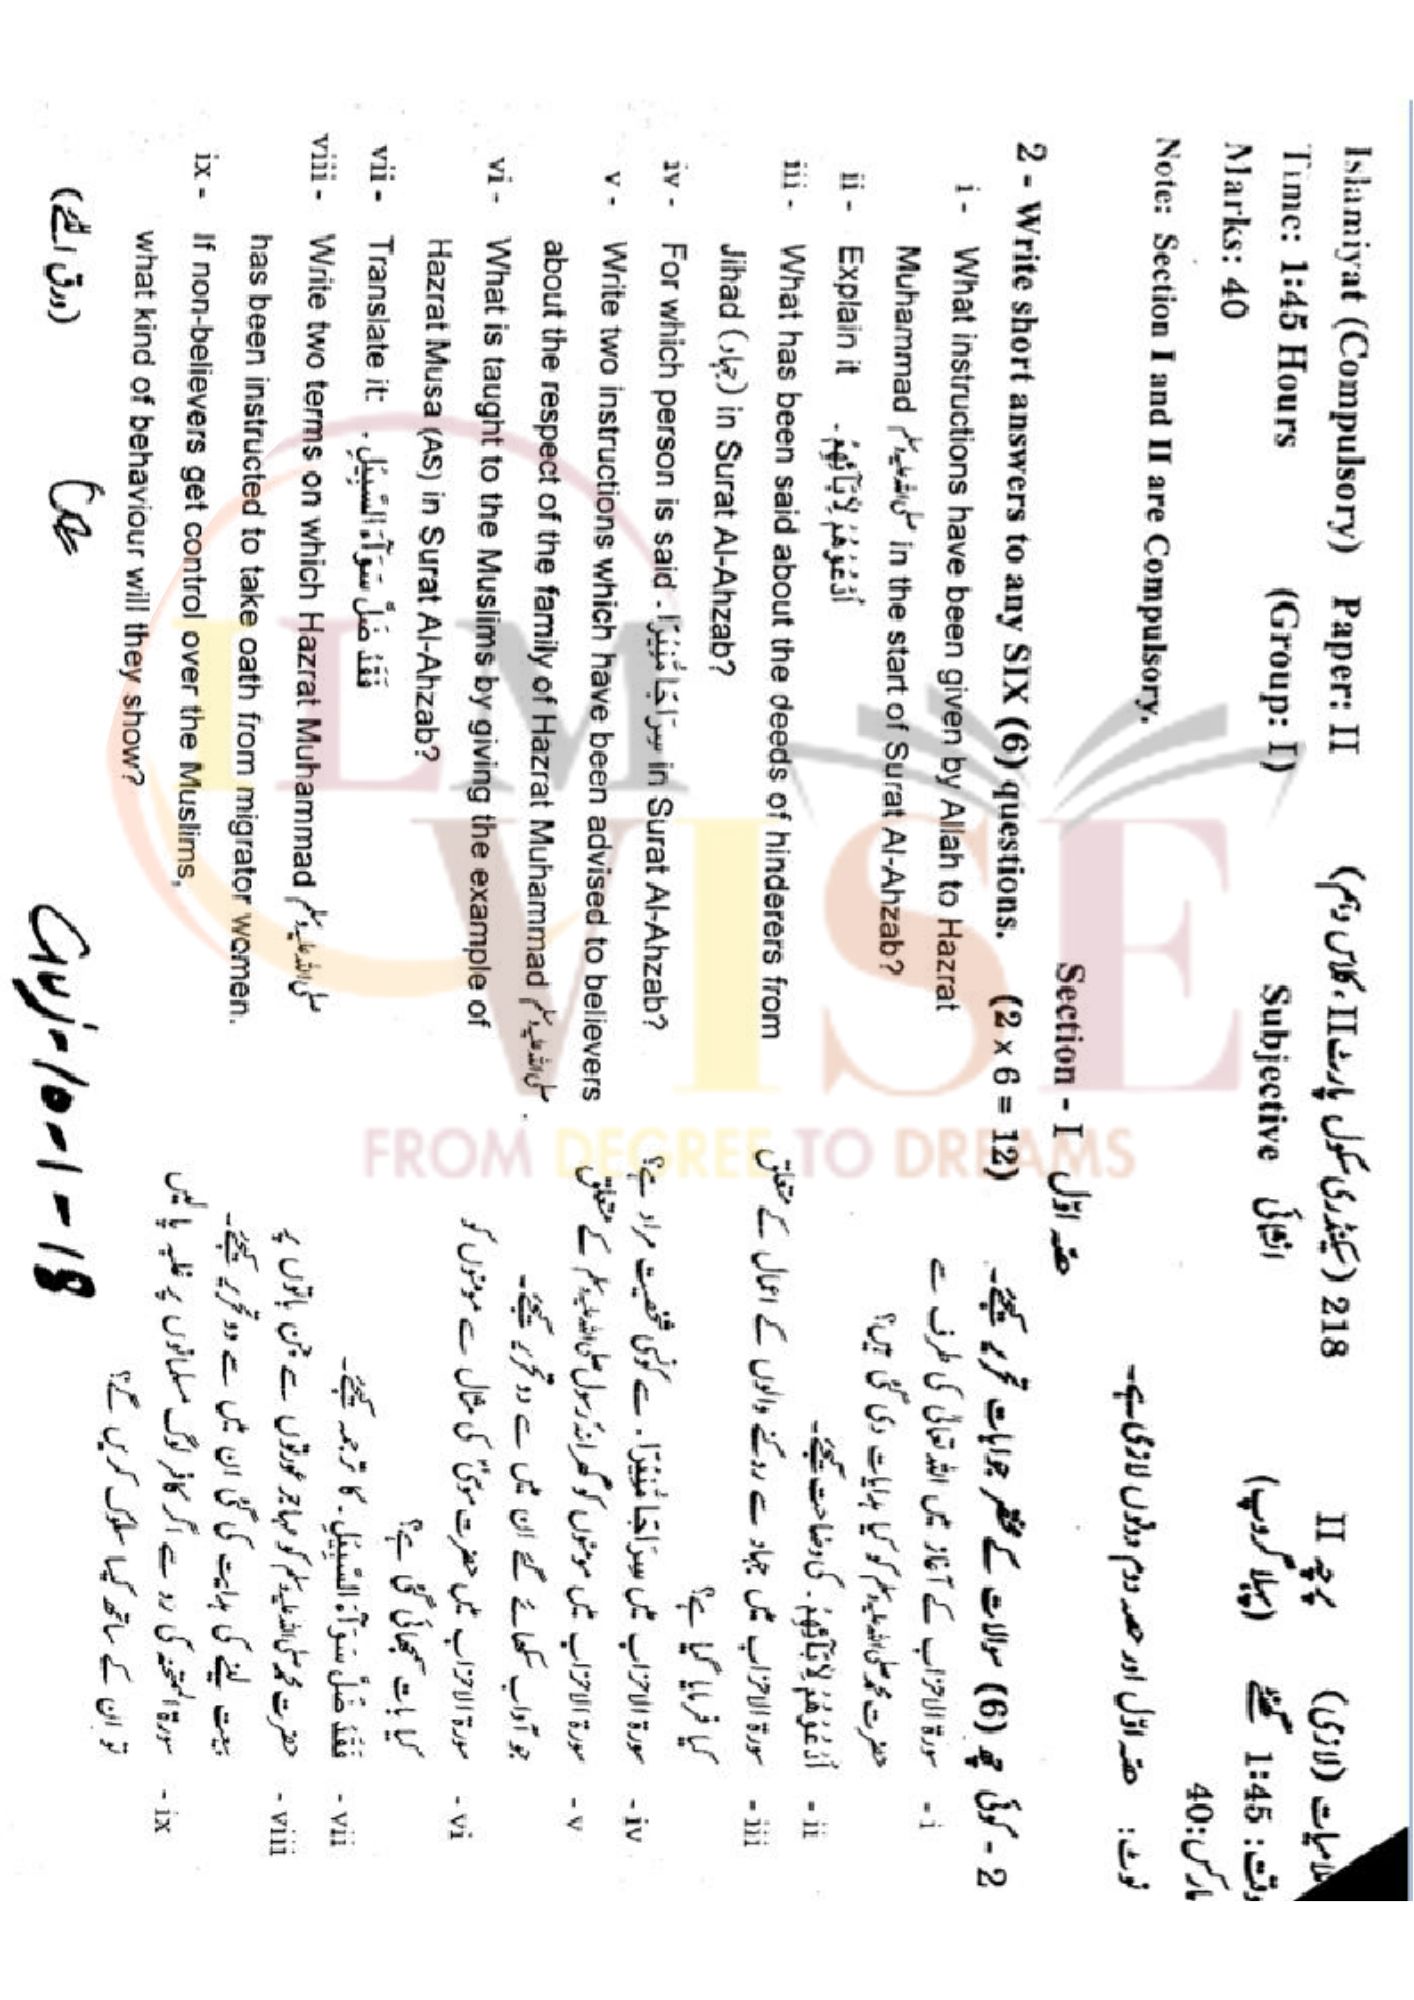 Islamiyat (Compulsory) Paper: II (سیکنڈری سکول پارٹ II، کلاس دہم) 218 پرچہ II (لازمی)
Time: 1:45 Hours (Group: I) Subjective انشائی (پہلا گروپ) وقت: 1:45 گھنٹے
Marks: 40 مارکس: 40
Note: Section I and II are Compulsory. نوٹ: حصہ اوّل اور حصہ دوم دونوں لازمی ہے۔
Section - I حصہ اوّل
2 - Write short answers to any SIX (6) questions. (2 x 6 = 12) 2 - کوئی چھ (6) سوالات کے مختصر جوابات تحریر کیجئے۔
i - What instructions have been given by Allah to Hazrat i - سورۃ الاحزاب کے آغاز میں اللہ تعالیٰ کی طرف سے
Muhammad صلی اللہ علیہ وسلم in the start of Surat Al-Ahzab? حضرت محمد صلی اللہ علیہ وسلم کو کیا ہدایات دی گئی ہیں؟
ii - Explain it اُدْعُوْهُمْ لِاٰبَآئِهِمْ . ii - اُدْعُوْهُمْ لِاٰبَآئِهِمْ . کی وضاحت کیجئے۔
iii - What has been said about the deeds of hinderers from iii - سورۃ الاحزاب میں جہاد سے روکنے والوں کے اعمال کے متعلق
Jihad (جہاد) in Surat Al-Ahzab? کیا فرمایا گیا ہے؟
iv - For which person is said . سِرَاجًا مُّنِيْرًا in Surat Al-Ahzab? iv - سورۃ الاحزاب میں سِرَاجًا مُّنِيْرًا . سے کونسی شخصیت مراد ہے؟
v - Write two instructions which have been advised to believers v - سورۃ الاحزاب میں مومنوں کو گھرانۂ رسول صلی اللہ علیہ وسلم کے متعلق
about the respect of the family of Hazrat Muhammad صلی اللہ علیہ وسلم . جو آداب سکھائے گئے ان میں سے دو تحریر کیجئے۔
vi - What is taught to the Muslims by giving the example of vi - سورۃ الاحزاب میں حضرت موسیٰؑ کی مثال سے مومنوں کو
Hazrat Musa (AS) in Surat Al-Ahzab? کیا بات سمجھائی گئی ہے؟
vii - Translate it: . فَقَدْ ضَلَّ سَوَآءَ السَّبِيْلِ vii - فَقَدْ ضَلَّ سَوَآءَ السَّبِيْلِ . کا ترجمہ کیجئے۔
viii - Write two terms on which Hazrat Muhammad صلی اللہ علیہ وسلم viii - حضرت محمد صلی اللہ علیہ وسلم کو مہاجر عورتوں سے جن باتوں پر
has been instructed to take oath from migrator women. بیعت لینے کی ہدایت کی گئی ان میں سے دو تحریر کیجئے۔
ix - If non-believers get control over the Muslims, ix - سورۃ الممتحنہ کی رو سے اگر کافر لوگ مسلمانوں پر غلبہ پا لیں
what kind of behaviour will they show? تو ان کے ساتھ کیا سلوک کریں گے؟
(ورق الٹیے)
Guj-10-1-18
ILM
VISE
FROM DEGREE TO DREAMS